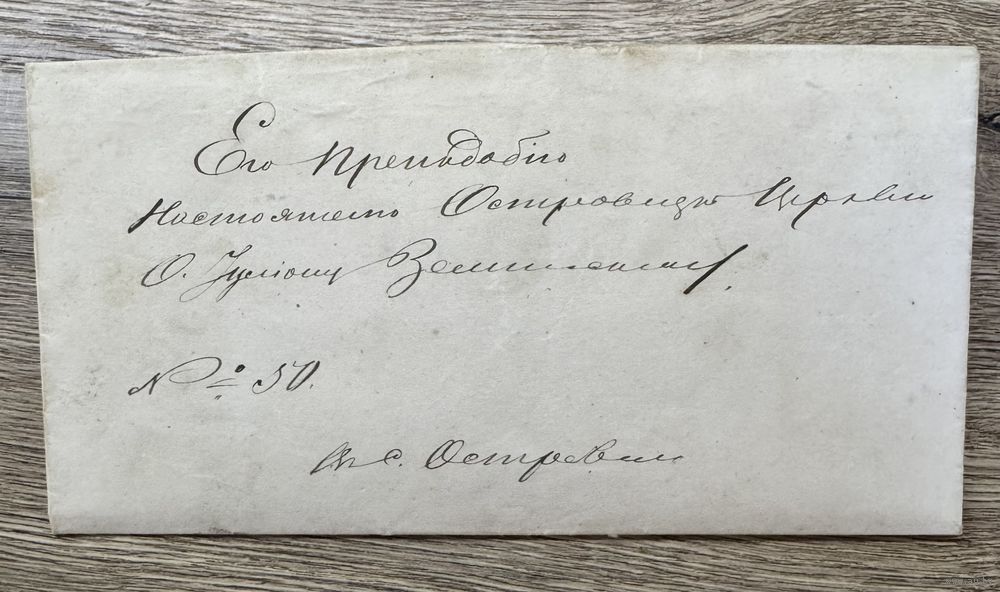 Его Преподобію
Настоятелю Островицкой Церкви
О. Іуліану
№ 50.
Въ с. Островки